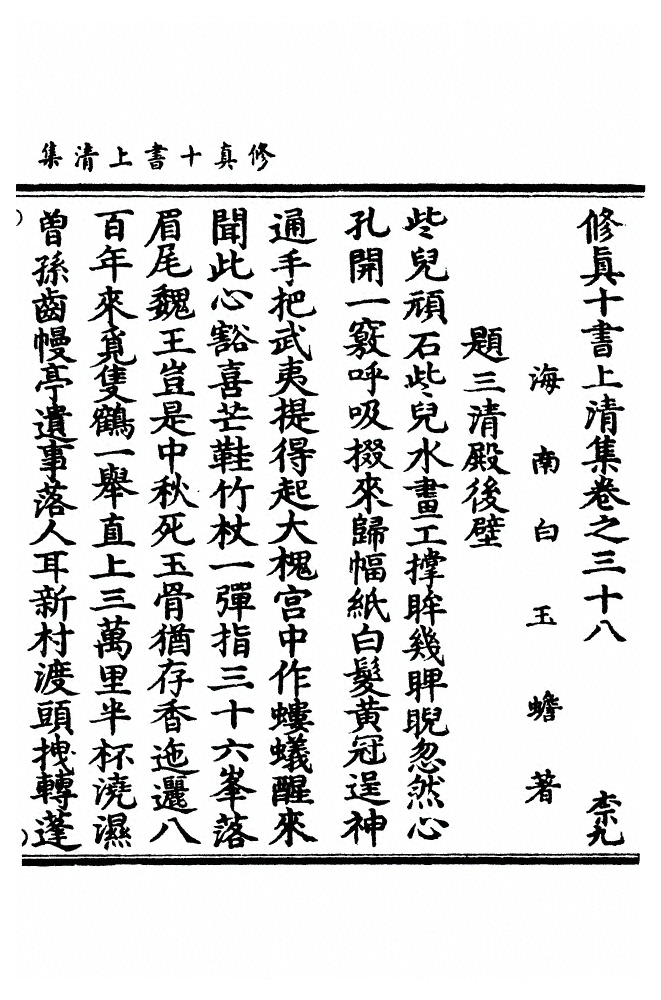 修真十書上清集
修眞十書上清集卷之三十八 柰九
海南白玉蟾著
題三清殿後壁
些兒頑石些兒水畫工撑眸幾睥睨忽然心
孔開一竅呼吸掇來歸幅紙白髮黃冠逞神
通手把武夷提得起大槐宮中作螻蟻醒來
聞此心豁喜芒鞋竹杖一彈指三十六峯落
眉尾魏王豈是中秋死玉骨猶存香迤邐八
百年來覓隻鶴一舉直上三萬里半杯澆濕
曾孫齒幔亭遺事落人耳新村渡頭拽轉蓬